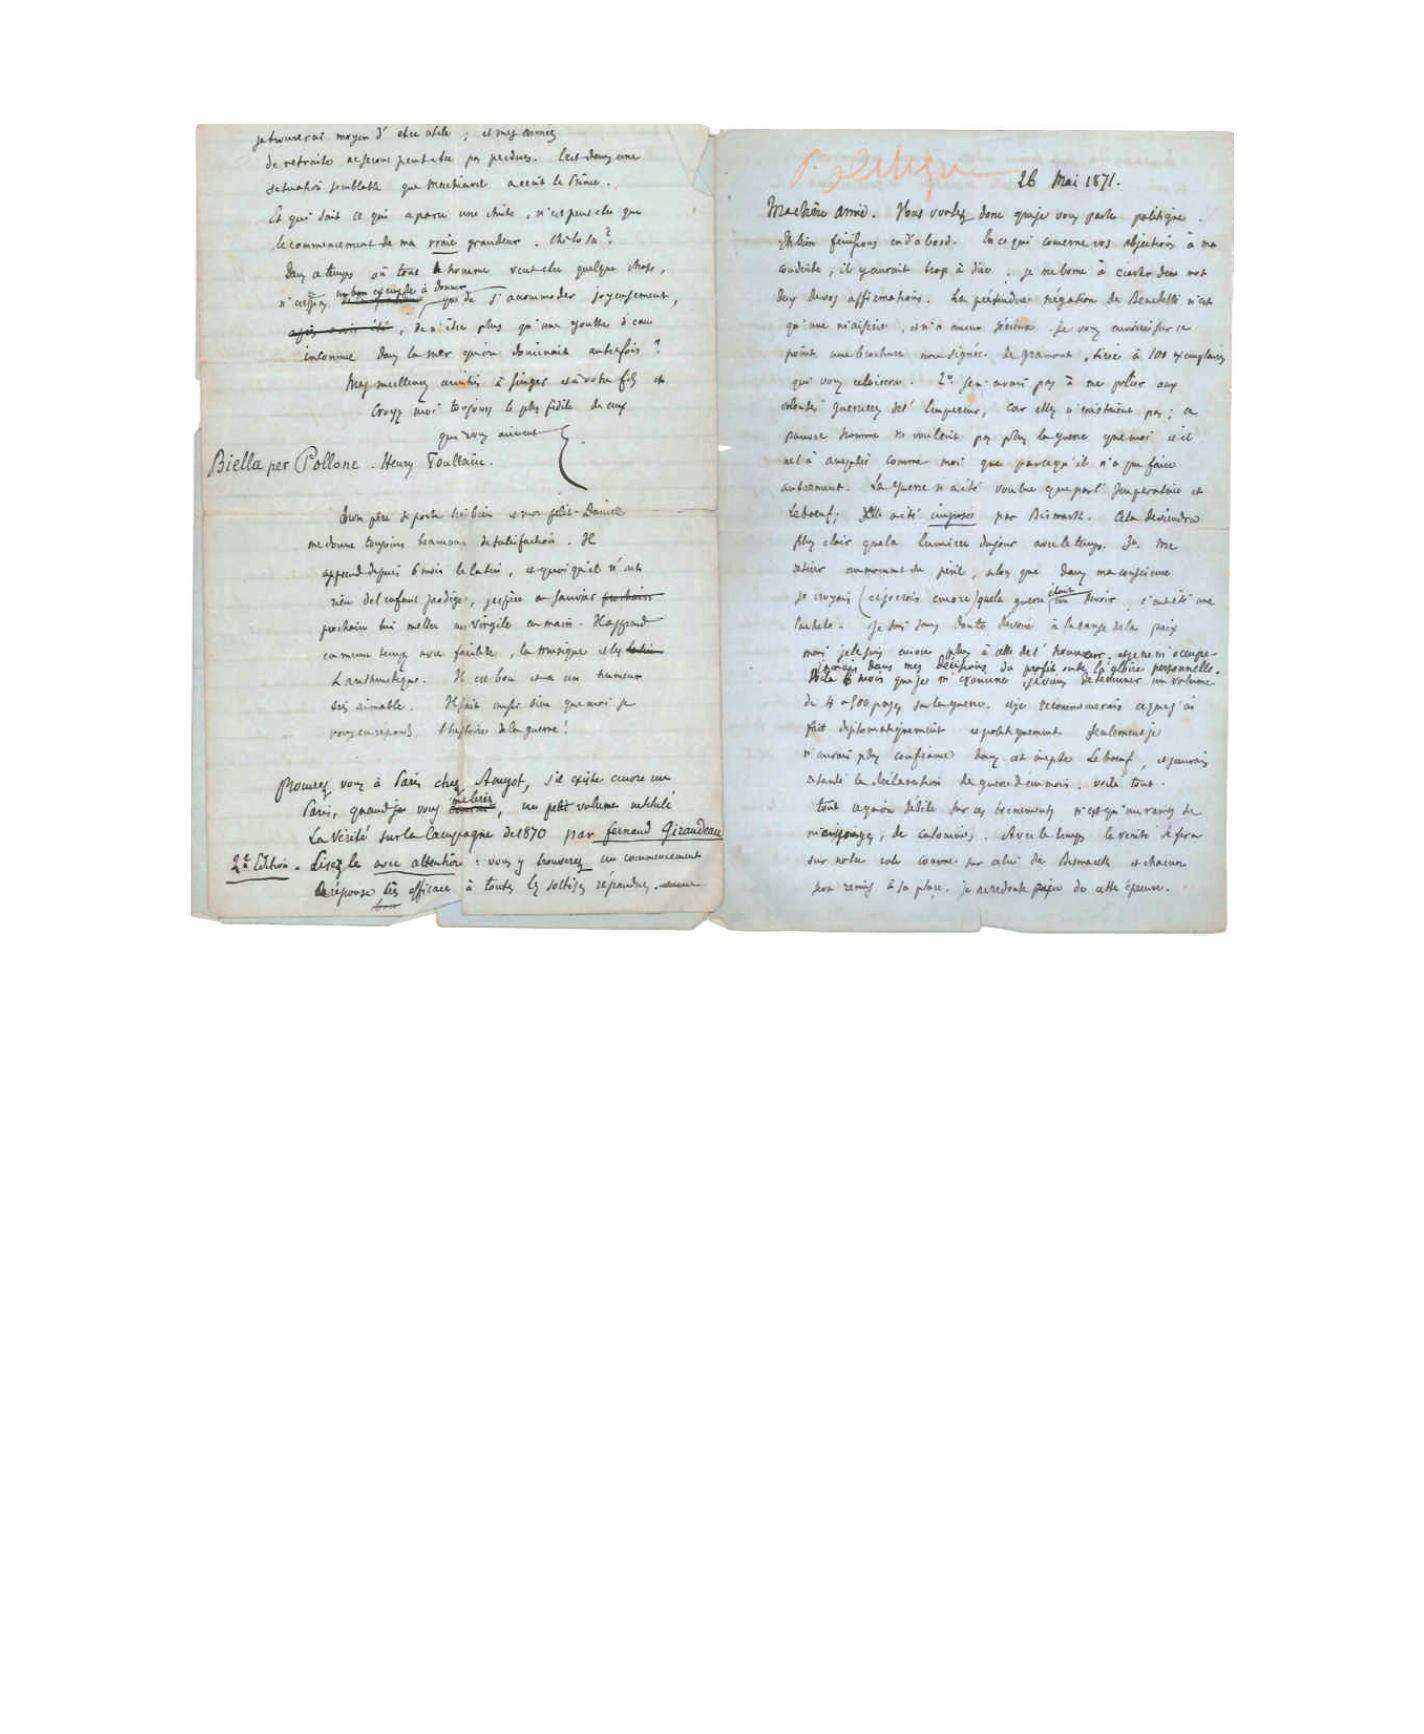 je trouverai moyen d'être utile ; et mes années
de retraite ne seront peut être pas perdues. C'est dans une
situation semblable que Machiavel a écrit le Prince.
Et qui sait ce qui a paru une chute, n'est peut être que
le commencement de ma vraie grandeur. Chi lo sa ?
Dans ce temps où tout homme veut être quelque chose,
n'est ce pas un bon exemple à donner que de s'accommoder joyeusement,
après avoir été, de n'être plus qu'une goutte d'eau
inconnue dans la mer qu'on dominait autrefois ?
Mes meilleures amitiés à Singer et à votre fils et
croyez moi toujours le plus fidèle de ceux
qui vous aiment
Biella per Pollone. Henry Toullain.
Mon père se porte très bien et mon petit Daniel
me donne toujours beaucoup de satisfaction. Il
apprend depuis 6 mois le latin, et quoiqu'il n'ait
rien de l'enfant prodige, j'espère en janvier prochain
prochain lui mettre un Virgile en main. Il apprend
en même temps avec facilité, la musique et les latin
L'arithmétique. Il est bon et a un humeur
très aimable. Il sait aussi bien que moi je
vous en réponds l'histoire de la guerre !
Procurez vous à Paris chez Amyot, s'il existe encore un
Paris, quand vous me lirez, un petit volume intitulé
La Vérité sur la Campagne de 1870 par Fernand Giraudeau
2e Edition. Lisez le avec attention : vous y trouverez un commencement
de réponse très efficace à toutes les sottises répandues.
Politique
26 Mai 1871.
Ma chère amie. Vous voulez donc que je vous parle politique.
Eh bien finissons en d'abord. En ce qui concerne vos objections à ma
conduite, il y aurait trop à dire. je me borne à contredire
deux de vos affirmations. La prétendue négation de Benedetti n'est
qu'une niaiserie, et n'a aucun sérieux. je vous enverrai sur ce
point une brochure non signée de Gramont, tirée à 100 exemplaires
qui vous éclairera. 2o je n'avais pas à me prêter aux
volontés guerrières de l'Empereur, car elles n'existaient pas ; ce
pauvre homme ne voulait pas plus la guerre que moi et il
ne l'a acceptée comme moi que parcequ'il n'a pu faire
autrement. La guerre n'a été voulue que par l'Impératrice et
Leboeuf ; Elle a été imposée par Bismarck. Cela deviendra
plus clair que la lumière du jour avec le temps. 3o. Me
retirer au moment du péril, alors que dans ma conscience
je croyais (et je crois encore) que la guerre était un devoir, c'eut été une
lâcheté. Je suis sans doute dévoué à la cause de la paix
mais je le suis encore plus à celle de l'honneur. et je ne m'occupe
jamais dans mes décisions du profit ou de la gloire personnelle.
Voilà 6 mois que je m'examine, je viens de terminer un volume
de 4 à 500 pages sur la guerre. et je recommencerais ce que j'ai
fait diplomatiquement et politiquement Seulement je
n'aurais plus confiance dans cet inepte Leboeuf, et j'aurais
retardé la déclaration de guerre d'un mois. voilà tout.
tout ce qu'on débite sur ces événements n'est qu'un ramas de
mensonges, de calomnies. Avec le temps la vérité se fera
sur notre rôle comme sur celui de Bismarck et chacun
sera remis à sa place. je ne redoute pas de cette épreuve.